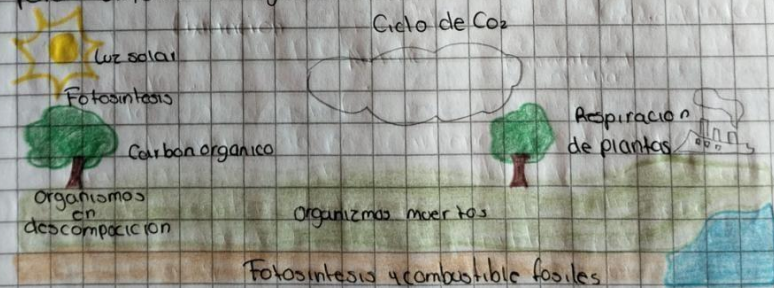 Ciclo de Co2
Luz solar
Fotosintesis
Respiracion
de plantas
Carbon organico
organismos
en
descompocicion
organizmos muertos
Fotosintesis y combustible fosiles